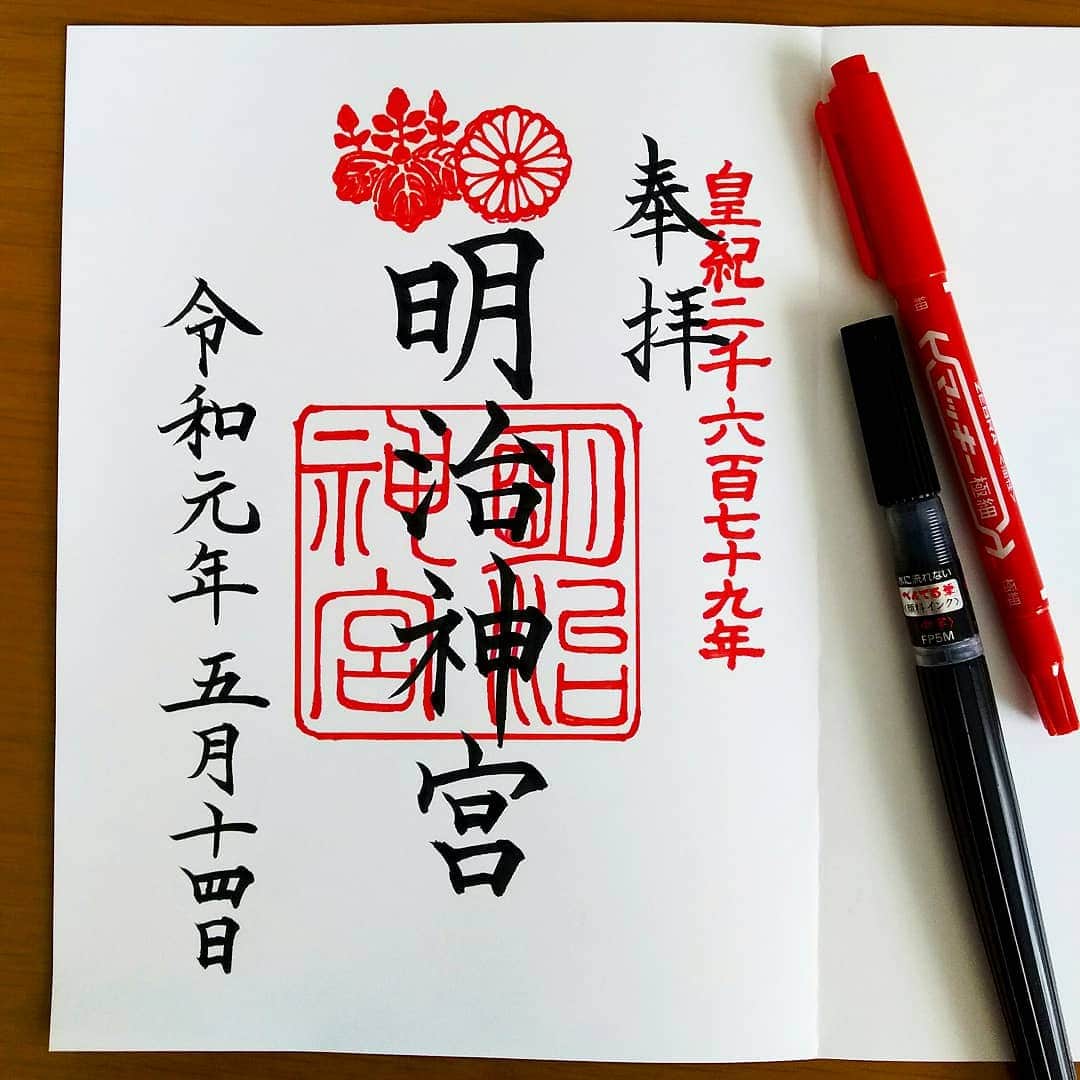 皇紀二千六百七十九年
奉拝
明治神宮
明治
神宮
令和元年 五月十四日
細
ZEBRA
マッキー極細
極細
水に流れない
ぺんてる筆
(顔料インク)
FP5M